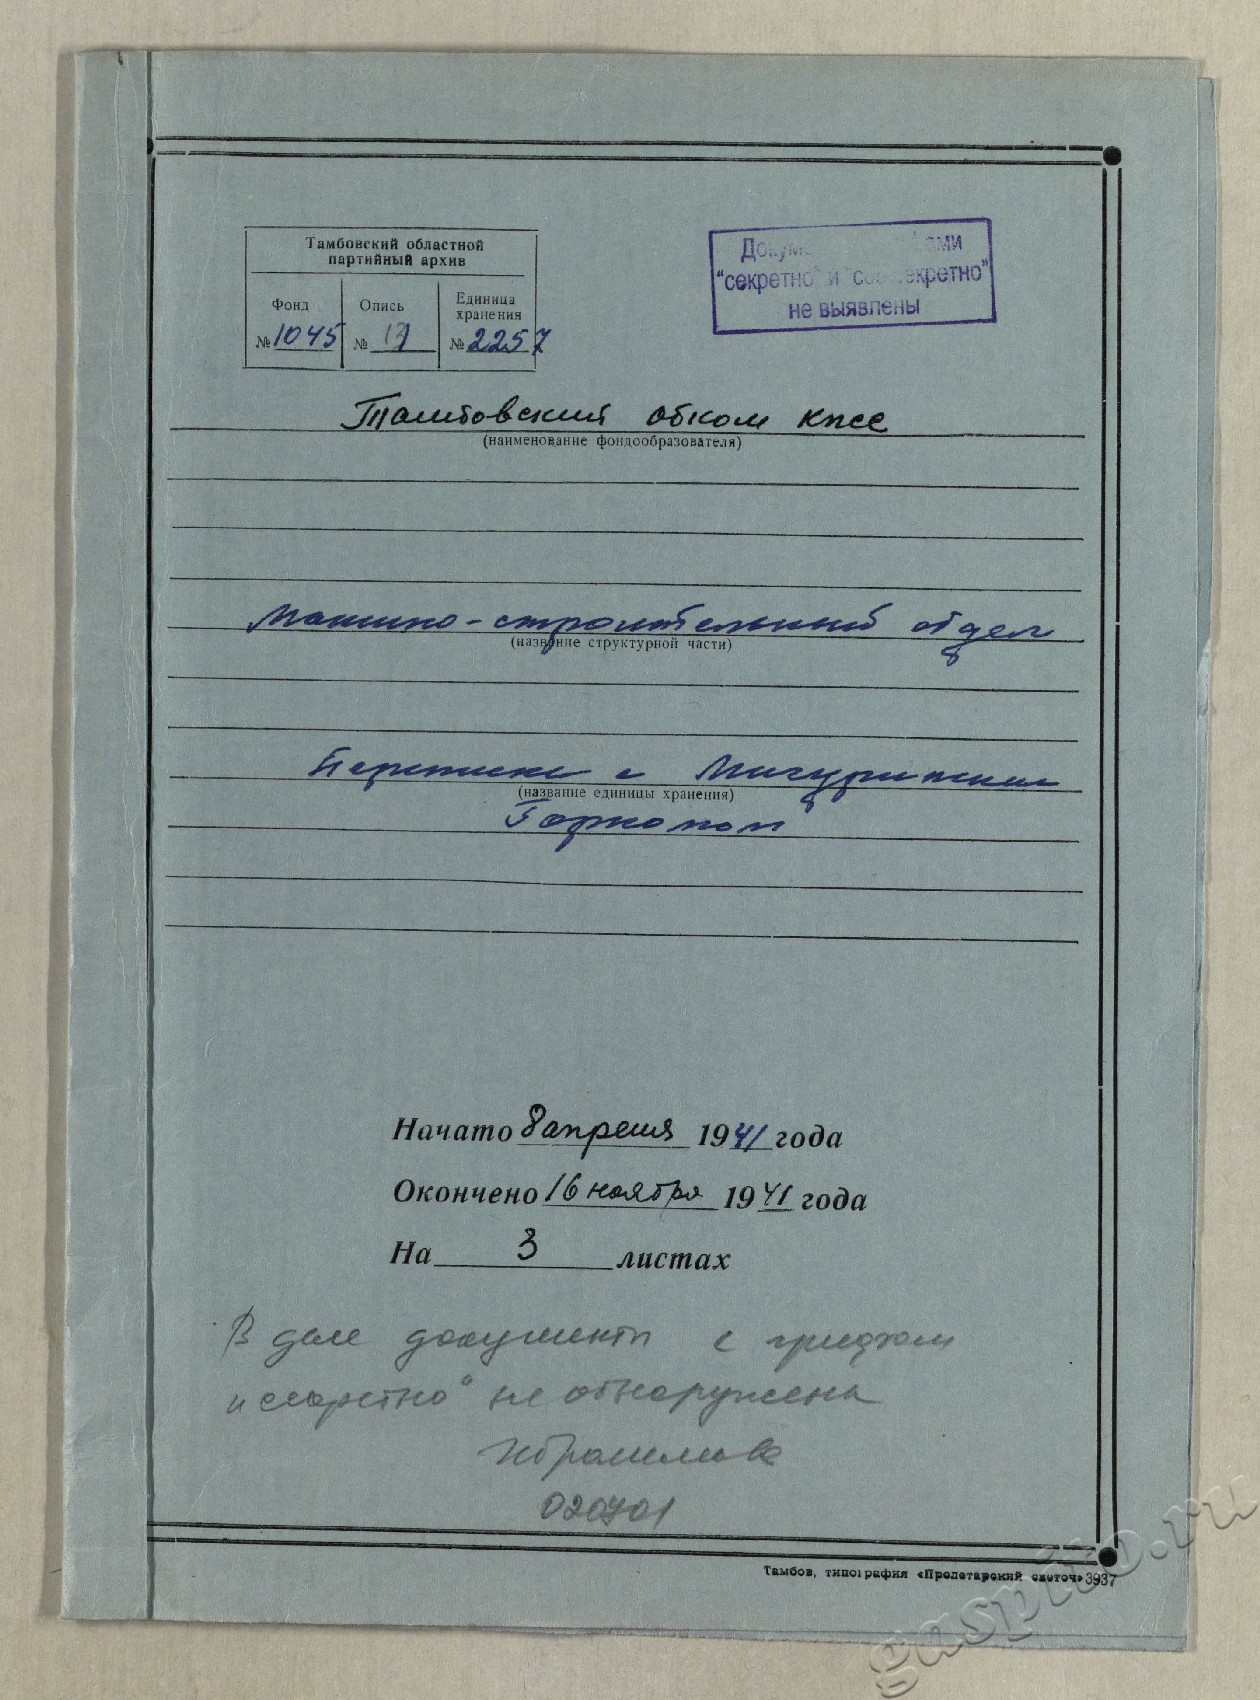 Тамбовский областной
партийный архив
Фонд
Опись
Единица
хранения
№ 1045
№
№ 2257
"секретно" и "сов.секретно"
не выявлены
Тамбовский обком КПСС
(наименование фондообразователя)
Машино-строительный отдел
(название структурной части)
Переписка с Мичуринским
(название единицы хранения)
Горкомом
Начато 8 апреля 1941 года
Окончено 16 ноября 1941 года
На 3 листах
В деле документы с грифом
"секретно" не обнаружены
Ибрагимова
020701
Тамбов, типография «Пролетарский светоч» 3937
gaspito.ru